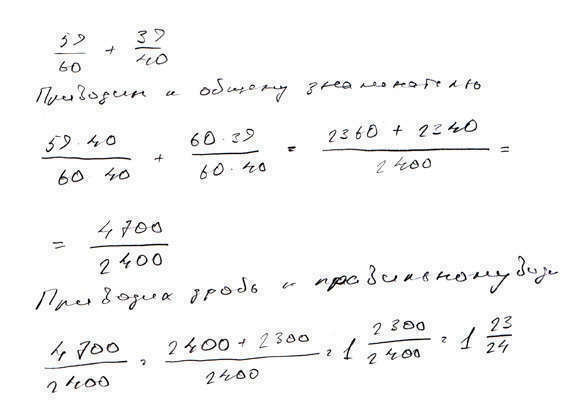 59/60 + 39/40
Приводим к общему знаменателю
59·40/60 40 + 60·39/60·40 = 2360 + 2340/2400 =
= 4700/2400
Приводим дробь к правильному виду
4700/2400 = 2400 + 2300/2400 = 1 2300/2400 = 1 23/24